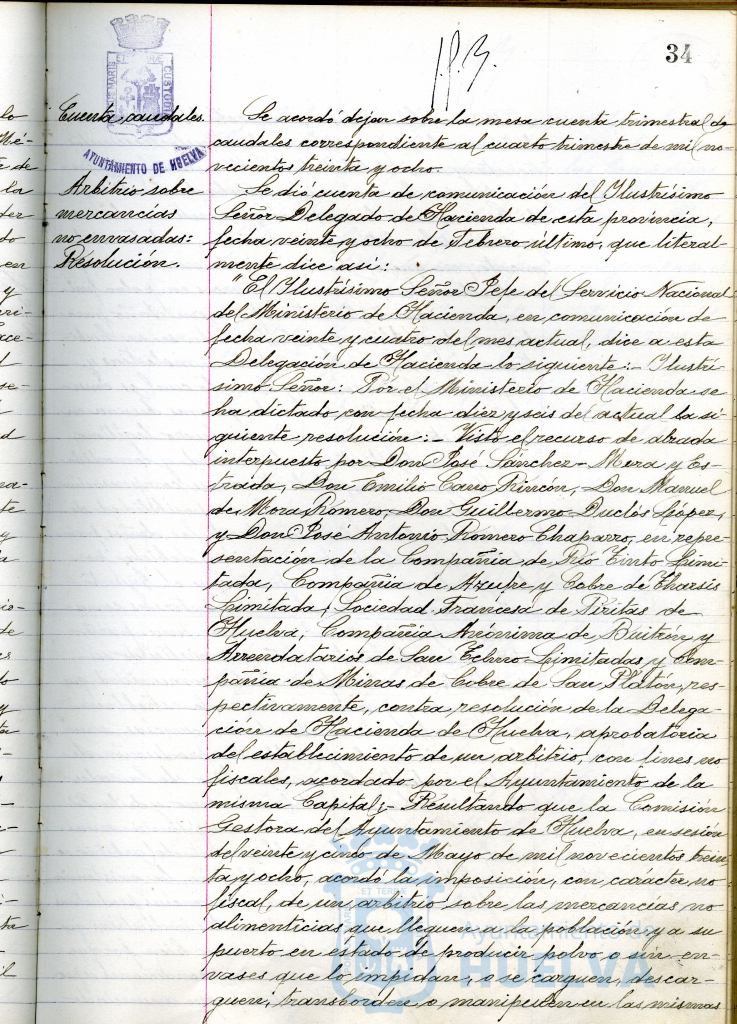 34
PORTUS MARIS ET TERRÆ CUSTODIA
AYUNTAMIENTO DE HUELVA
Cuenta caudales.
Se acordó dejar sobre la mesa cuenta trimestral de
caudales correspondiente al cuarto trimestre de mil no-
vecientos treinta y ocho.
Arbitrio sobre
mercancías
no envasadas:
Resolución.
Se dió cuenta de comunicación del Ilustrísimo
Señor Delegado de Hacienda de esta provincia,
fecha veinte y ocho de Febrero último, que literal-
mente dice así:
"El Ilustrísimo Señor Jefe del Servicio Nacional
del Ministerio de Hacienda, en comunicación de
fecha veinte y cuatro del mes actual, dice a esta
Delegación de Hacienda lo siguiente:- Ilustrí-
simo Señor: Por el Ministerio de Hacienda se
ha dictado con fecha diez y seis del actual la si-
guiente resolución:- Visto el recurso de alzada
interpuesto por Don José Sánchez-Mora y Es-
trada, Don Emilio Cano Rincón, Don Manuel
de Mora Romero, Don Guillermo Duclós López,
y Don José Antonio Romero Chaparro, en repre-
sentación de la Compañía de Río Tinto Limi-
tada, Compañía de Azufre y Cobre de Tharsis
Limitada, Sociedad Francesa de Piritas de
Huelva, Compañía Anónima de Buitrón y
Arrendatarios de San Telmo Limitadas y Com-
pañia de Minas de Cobre de San Platón, res-
pectivamente, contra resolución de la Delega-
ción de Hacienda de Huelva, aprobatoria
del establecimiento de un arbitrio, con fines no
fiscales, acordado por el Ayuntamiento de la
misma Capital;- Resultando que la Comisión
Gestora del Ayuntamiento de Huelva, en sesión
del veinte y cinco de Mayo de mil novecientos trein-
ta y ocho, acordó la imposición, con carácter no
fiscal, de un arbitrio sobre las mercancías no
alimenticias que lleguen a la población y a su
puerto en estado de producir polvo o sin en-
vases que lo impidan, o se carguen, descar-
guen, transborden o manipulen en las mismas
Ayuntamiento de
HUELVA